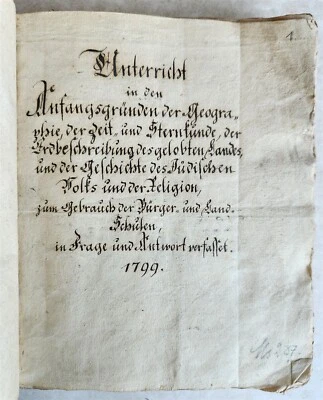 1.
Unterricht
in den
Anfangsgründen der Geogra-
phie, der Zeit- und Sternkunde, der
Erdbeschreibung des gelobten Landes,
und der Geschichte des Jüdischen
Volks und der Religion,
zum Gebrauch der Bürger- und Land-
Schulen,
in Frage und Antwort verfasset.
1799.